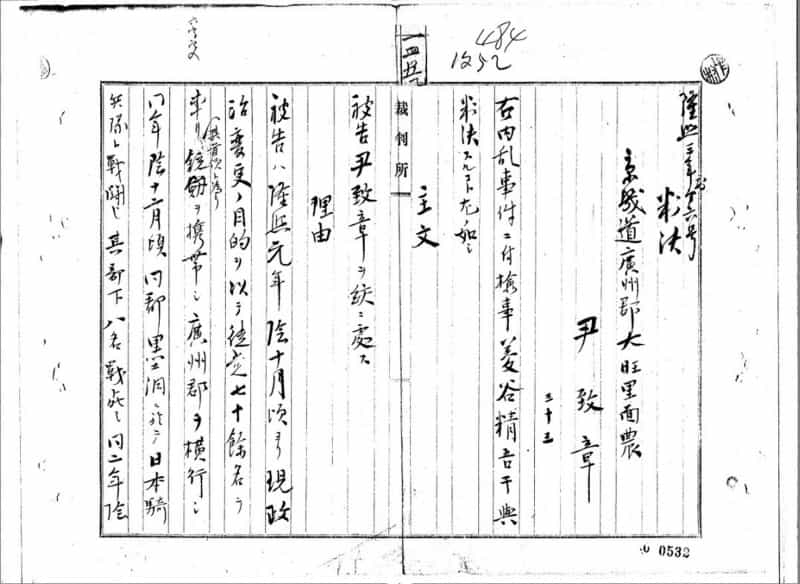 484
1252
隆熙三年刑第六号
判決
京畿道廣州郡大旺里面農
尹致章
三十三
右内乱事件ニ付検事菱谷精吾干與
判決スルコト左ノ如シ
主文
被告尹致章ヲ絞ニ處ス
理由
被告ハ隆熙元年陰十月頃ヨリ現政
治変更ノ目的ヲ以テ徒党七十餘名ヲ
率ヰ銃劔ヲ携帯シ廣州郡ヲ横行シ
同年陰十二月頃同郡黒洞ニ於テ日本騎
兵隊ト戦闘シ其部下八名戦死シ同二年陰
裁判所
0532